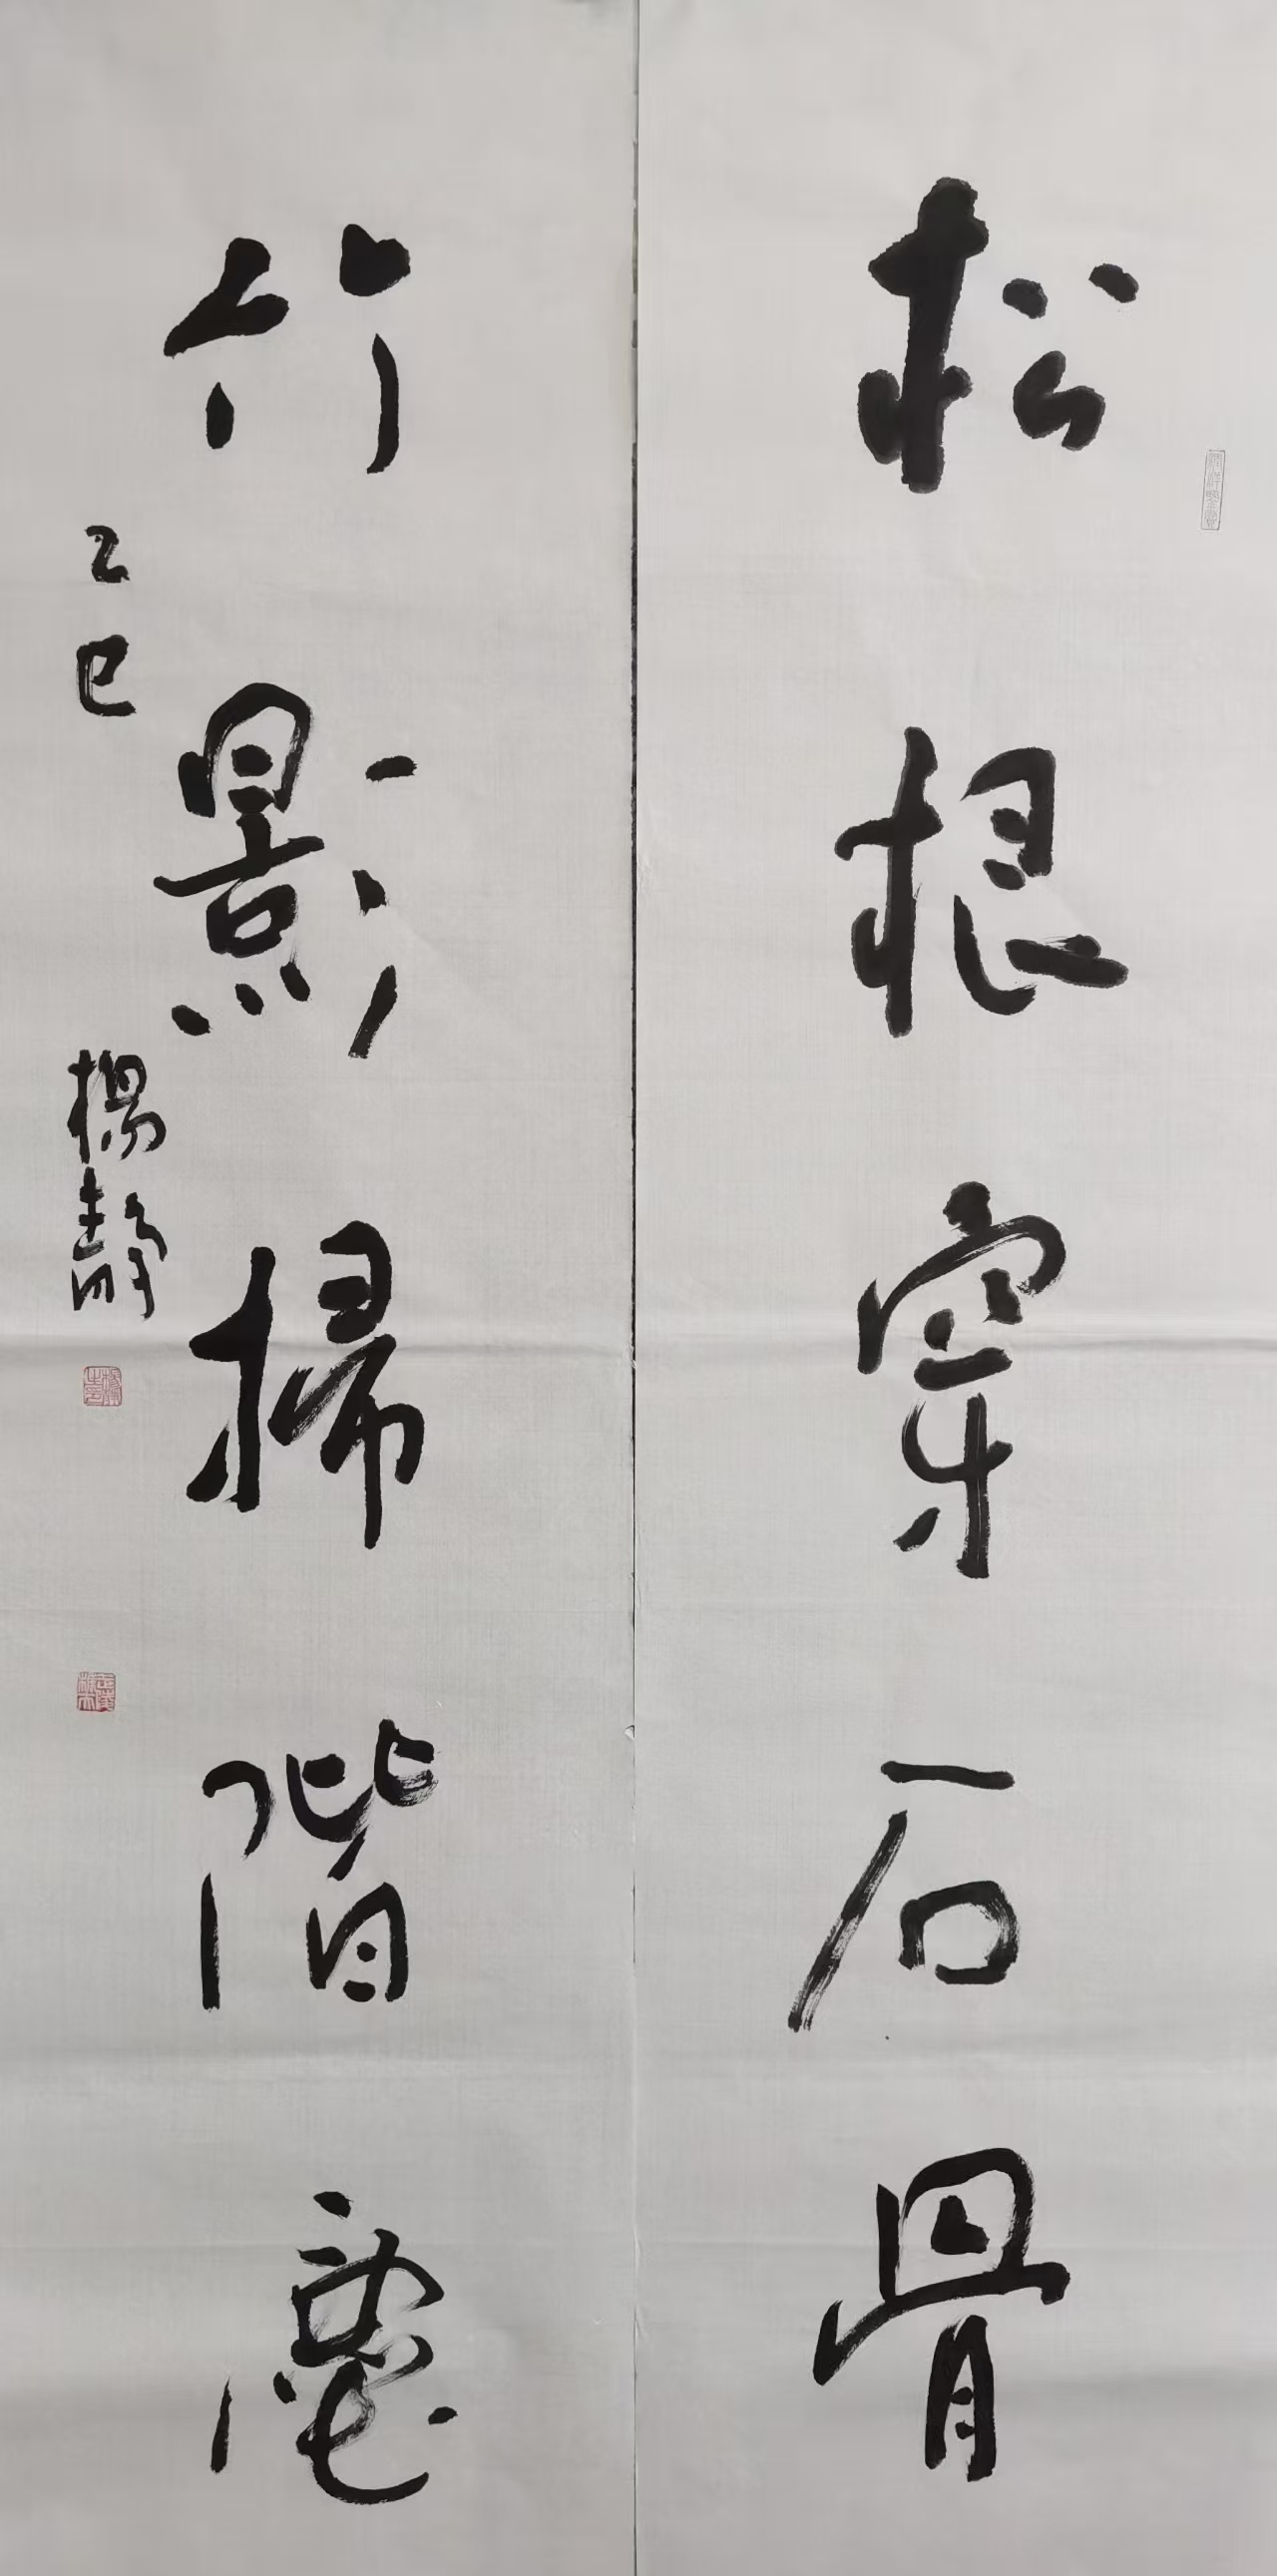 松根穿石骨
竹影掃階塵
乙巳
楊靜